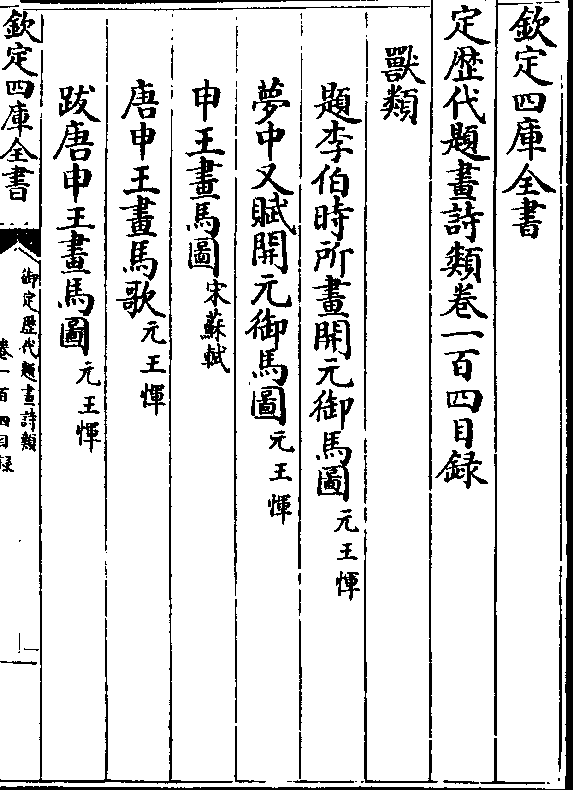 欽定四庫全書
定歴代題畫詩類卷一百四目録
獸類
題李伯時所畫開元御馬圖 元王惲
夢中又賦開元御馬圖 元王惲
申王畫馬圖 宋蘇軾
唐申王畫馬歌 元王惲
跋唐申王畫馬圖 元王惲
欽定四庫全書
御定歴代題畫詩類
卷一百四目録
一